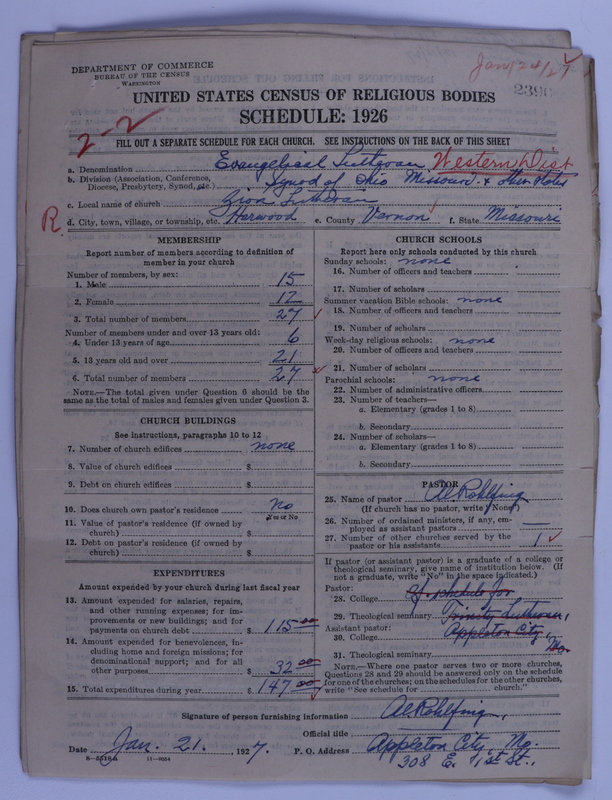 DEPARTMENT OF COMMERCE
BUREAU OF THE CENSUS
WASHINGTON
Jan/24/27
2390
UNITED STATES CENSUS OF RELIGIOUS BODIES
SCHEDULE: 1926
2-2
FILL OUT A SEPARATE SCHEDULE FOR EACH CHURCH. SEE INSTRUCTIONS ON THE BACK OF THIS SHEET
a. Denomination Evangelical Lutheran Western Dist
b. Division (Association, Conference, Diocese, Presbytery, Synod, etc.) Synod of Ohio Missouri & other States
c. Local name of church Zion Lutheran
R
d. City, town, village, or township, etc. Harwood e. County Vernon f. State Missouri
MEMBERSHIP
Report number of members according to definition of
member in your church
Number of members, by sex:
1. Male 15
2. Female 12
3. Total number of members 27
Number of members under and over 13 years old:
4. Under 13 years of age 6
5. 13 years old and over 21
6. Total number of members 27
NOTE.—The total given under Question 6 should be the
same as the total of males and females given under Question 3.
CHURCH BUILDINGS
See instructions, paragraphs 10 to 12
7. Number of church edifices none
8. Value of church edifices $
9. Debt on church edifices $
10. Does church own pastor's residence No
Yes or No
11. Value of pastor's residence (if owned by
church) $
12. Debt on pastor's residence (if owned by
church) $
EXPENDITURES
Amount expended by your church during last fiscal year
13. Amount expended for salaries, repairs,
and other running expenses; for im-
provements or new buildings; and for
payments on church debt $ 115.00
14. Amount expended for benevolences, in-
cluding home and foreign missions; for
denominational support; and for all
other purposes $ 32.00
15. Total expenditures during year $ 147.00
CHURCH SCHOOLS
Report here only schools conducted by this church
Sunday schools: none
16. Number of officers and teachers
17. Number of scholars
Summer vacation Bible schools: none
18. Number of officers and teachers
19. Number of scholars
Week-day religious schools: none
20. Number of officers and teachers
21. Number of scholars
Parochial schools: none
22. Number of administrative officers
23. Number of teachers—
a. Elementary (grades 1 to 8)
b. Secondary
24. Number of scholars—
a. Elementary (grades 1 to 8)
b. Secondary
PASTOR
25. Name of pastor Al Rohlfing
(If church has no pastor, write "None")
26. Number of ordained ministers, if any, em-
ployed as assistant pastors —
27. Number of other churches served by the
pastor or his assistants 1
If pastor (or assistant pastor) is a graduate of a college or
theological seminary, give name of institution below. (If
not a graduate, write "No" in the space indicated.)
Pastor:
28. College schedule for
29. Theological seminary Trinity Lutheran,
Assistant pastor: Appleton City,
30. College Mo.
31. Theological seminary
NOTE.—Where one pastor serves two or more churches,
Questions 28 and 29 should be answered only on the schedule
for one of the churches; on the schedules for the other churches,
write "See schedule for church."
Signature of person furnishing information Al Rohlfing,
Official title
Date Jan. 21. , 1927. P. O. Address Appleton City, Mo.
308 E. 1st St.,
11—9564